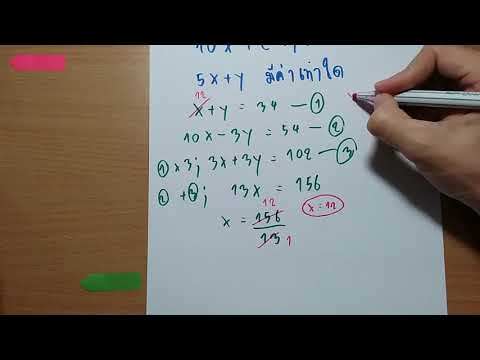 10x
5x+y มีค่าเท่าใด
12
x+y = 34 — ①
10x-3y = 54 — ②
①×3; 3x+3y = 102 — ③
②+③; 13x = 156
12
x = 156/13 x=12
1